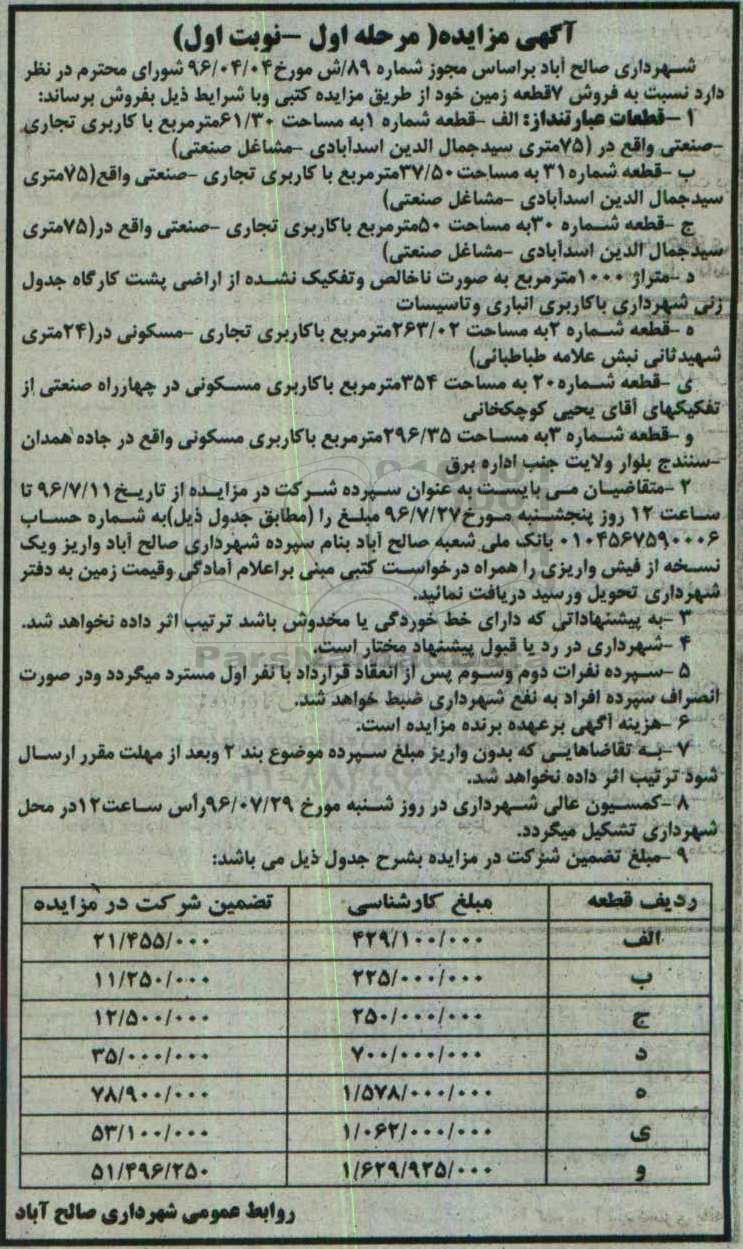 آگهی مزایده( مرحله اول –نوبت اول)
شهرداری صالح آباد براساس مجوز شماره ۸۹/ش مورخ۹۶/۰۴/۰۴ شورای محترم در نظر
دارد نسبت به فروش ۷قطعه زمین خود از طریق مزایده کتبی وبا شرایط ذیل بفروش برساند:
۱ –قطعات عبارتنداز: الف –قطعه شماره ۱به مساحت ۶۱/۳۰مترمربع با کاربری تجاری
–صنعتی واقع در (۷۵متری سیدجمال الدین اسدآبادی –مشاغل صنعتی)
ب –قطعه شماره۳۱ به مساحت ۳۷/۵۰مترمربع با کاربری تجاری –صنعتی واقع(۷۵متری
سیدجمال الدین اسدآبادی –مشاغل صنعتی)
ج –قطعه شماره ۳۰به مساحت ۵۰مترمربع باکاربری تجاری –صنعتی واقع در(۷۵متری
سیدجمال الدین اسدآبادی –مشاغل صنعتی)
د –متراژ ۱۰۰۰مترمربع به صورت ناخالص وتفکیک نشده از اراضی پشت کارگاه جدول
زنی شهرداری باکاربری انباری وتاسیسات
ه –قطعه شماره ۲به مساحت ۲۶۳/۰۲مترمربع باکاربری تجاری –مسکونی در(۲۴متری
شهیدثانی نبش علامه طباطبائی)
ی –قطعه شماره۲۰ به مساحت ۳۵۴مترمربع باکاربری مسکونی در چهارراه صنعتی از
تفکیکهای آقای یحیی کوچکخانی
و –قطعه شماره ۳به مساحت ۲۹۶/۳۵مترمربع باکاربری مسکونی واقع در جاده همدان
–سنندج بلوار ولایت جنب اداره برق
۲ –متقاضیان می بایست به عنوان سپرده شرکت در مزایده از تاریخ۹۶/۷/۱۱ تا
ساعت ۱۲ روز پنجشنبه مورخ۹۶/۷/۲۷ مبلغ را (مطابق جدول ذیل)به شماره حساب
۰۱۰۴۵۶۷۵۹۰۰۰۶ بانک ملی شعبه صالح آباد بنام سپرده شهرداری صالح آباد واریز ویک
نسخه از فیش واریزی را همراه درخواست کتبی مبنی براعلام آمادگی وقیمت زمین به دفتر
شهرداری تحویل ورسید دریافت نمائید.
۳ –به پیشنهاداتی که دارای خط خوردگی یا مخدوش باشد ترتیب اثر داده نخواهد شد.
۴ –شهرداری در رد یا قبول پیشنهاد مختار است.
۵ –سپرده نفرات دوم وسوم پس از انعقاد قرارداد با نفر اول مسترد میگردد ودر صورت
انصراف سپرده افراد به نفع شهرداری ضبط خواهد شد.
۶ –هزینه آگهی برعهده برنده مزایده است.
۷ –به تقاضاهایی که بدون واریز مبلغ سپرده موضوع بند ۲ وبعد از مهلت مقرر ارسال
شود ترتیب اثر داده نخواهد شد.
۸ –کمسیون عالی شهرداری در روز شنبه مورخ ۹۶/۰۷/۲۹رأس ساعت۱۲در محل
شهرداری تشکیل میگردد.
۹ –مبلغ تضمین شرکت در مزایده بشرح جدول ذیل می باشد:
ردیف قطعه مبلغ کارشناسی تضمین شرکت در مزایده
الف ۴۲۹/۱۰۰/۰۰۰ ۲۱/۴۵۵/۰۰۰
ب ۲۲۵/۰۰۰/۰۰۰ ۱۱/۲۵۰/۰۰۰
ج ۲۵۰/۰۰۰/۰۰۰ ۱۲/۵۰۰/۰۰۰
د ۷۰۰/۰۰۰/۰۰۰ ۳۵/۰۰۰/۰۰۰
ه ۱/۵۷۸/۰۰۰/۰۰۰ ۷۸/۹۰۰/۰۰۰
ی ۱/۰۶۲/۰۰۰/۰۰۰ ۵۳/۱۰۰/۰۰۰
و ۱/۶۲۹/۹۲۵/۰۰۰ ۵۱/۴۹۶/۲۵۰
روابط عمومی شهرداری صالح آباد